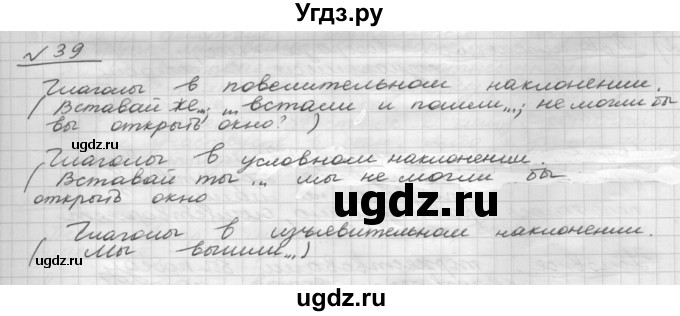 Угдз.ру
№ 39
Глаголы в повелительном наклонении.
(Вставай же...; ...встали и пошли...; не могли бы
вы открыть окно?)
(Глаголы в условном наклонении.
(Вставай ты ... мы не могли бы
открыть окно
Глаголы в изъявительном наклонении.
(Мы вышли...)
©ugdz.ru
©ugdz.ru
ugdz.ru
©ugdz.ru
©ugdz.ru
ugdz.ru